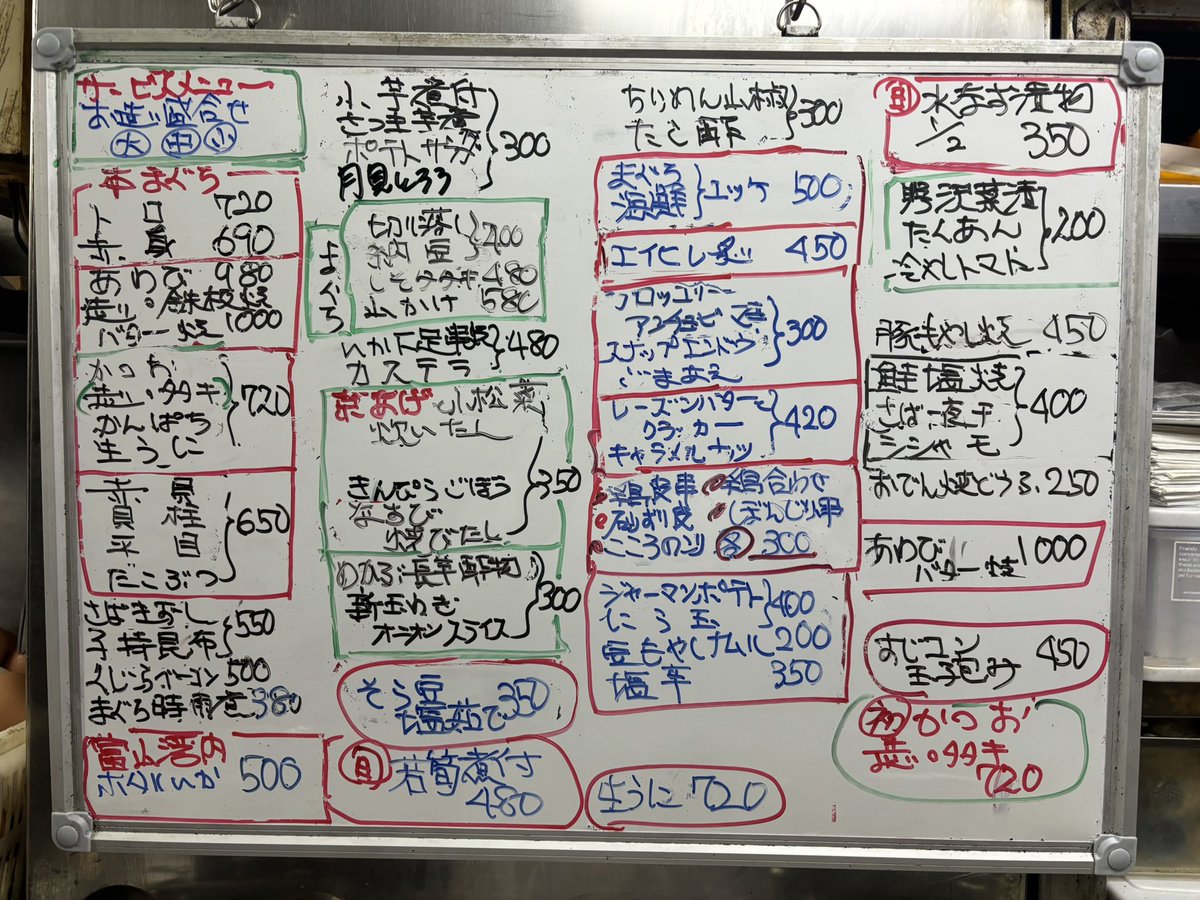 サービスメニュー
お造り盛合せ
大 中 小
本まぐろ
トロ 720
赤身 690
あわび 980
造り。鉄板焼
バター焼 1000
かつお
造い タタキ
かんぱち 720
生うに
赤貝
貝柱 650
平目
たこぶつ
さばきずし
子持昆布 550
くじらベーコン 500
まぐろ時雨煮 380
富山湾内
ホタルいか 500
小芋煮付
さつま芋煮
ポテトサラダ 300
月見とろろ
まぐろ
切り落し
納豆 400
しそタタキ 480
山かけ 580
いか下足串焼
カステラ 480
京あげ 小松菜
炊いたし
きんぴらごぼう 350
焼びたし
めかぶ 長芋酢物
新玉ねぎ 300
オニオンスライス
そら豆
塩茹で 350
旬 若筍煮付
480
ちりめん山椒
たこ酢 300
まぐろ
海鮮 ユッケ 500
エイヒレ炙り 450
ブロッコリー
アンチョビ
スナップエンドウ 300
ごまあえ
レーズンバターと
クラッカー 420
キャラメルナッツ
鶏皮串 組合わせ
砂ずり皮 ぼんじり串
こころのこり 各 300
ジャーマンポテト
にら玉 400
豆もやしナムル 200
塩辛 350
生うに 720
旬 水なす漬物
1/2 350
野沢菜漬
たくあん 200
冷やしトマト
豚もやし炒え 450
鮭塩焼
さば一夜干 400
シシャモ
おでん焼どうふ 250
あわび
バター焼 1000
すじコン
玉子包み 450
初 かつお
造い。タタキ
720